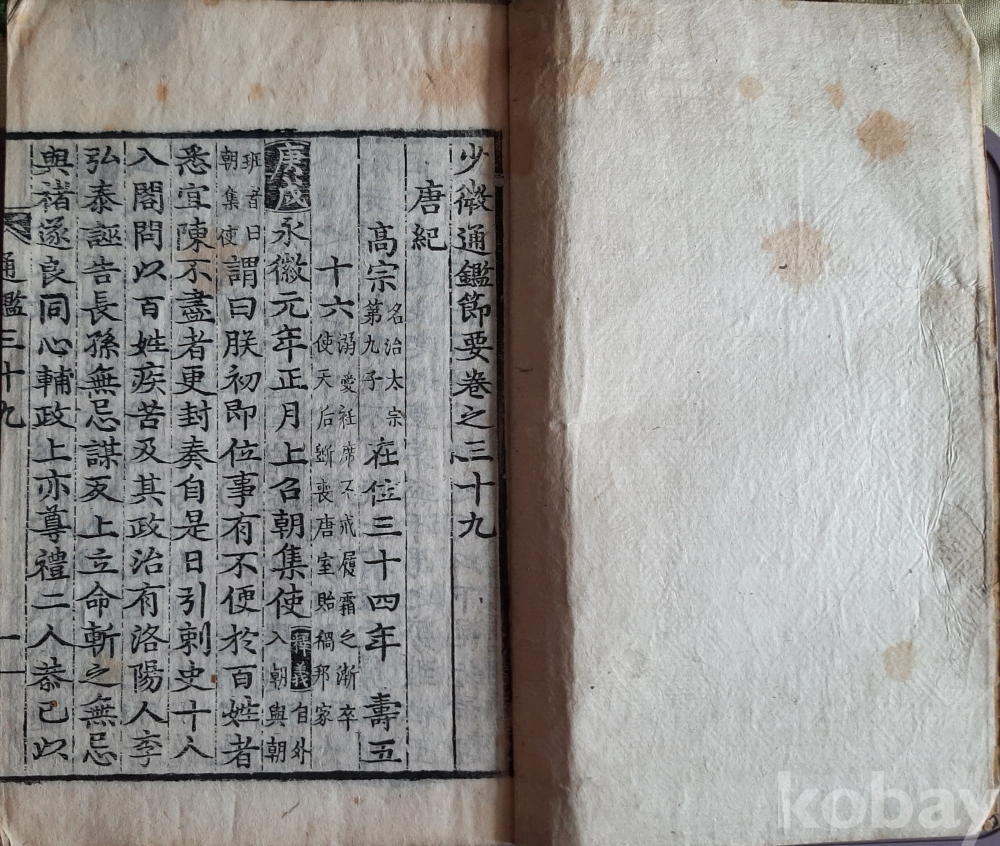 少微通鑑節要卷之三十九
唐紀
高宗 名治太宗第九子 在位三十四年 壽五
十六 溺愛衽席不戒履霜之漸卒使天后斵喪唐室貽禍邦家
庚戌 永徽元年正月上召朝集使 釋義 自外入朝與朝
班者曰朝集使 謂曰朕初即位事有不便於百姓者
悉宜陳不盡者更封奏自是日引刺史十人
入閤問以百姓疾苦及其政治有洛陽人李
弘泰誣告長孫無忌謀反上立命斬之無忌
與褚遂良同心輔政上亦尊禮二人恭己以
通鑑三十九 一
kobay